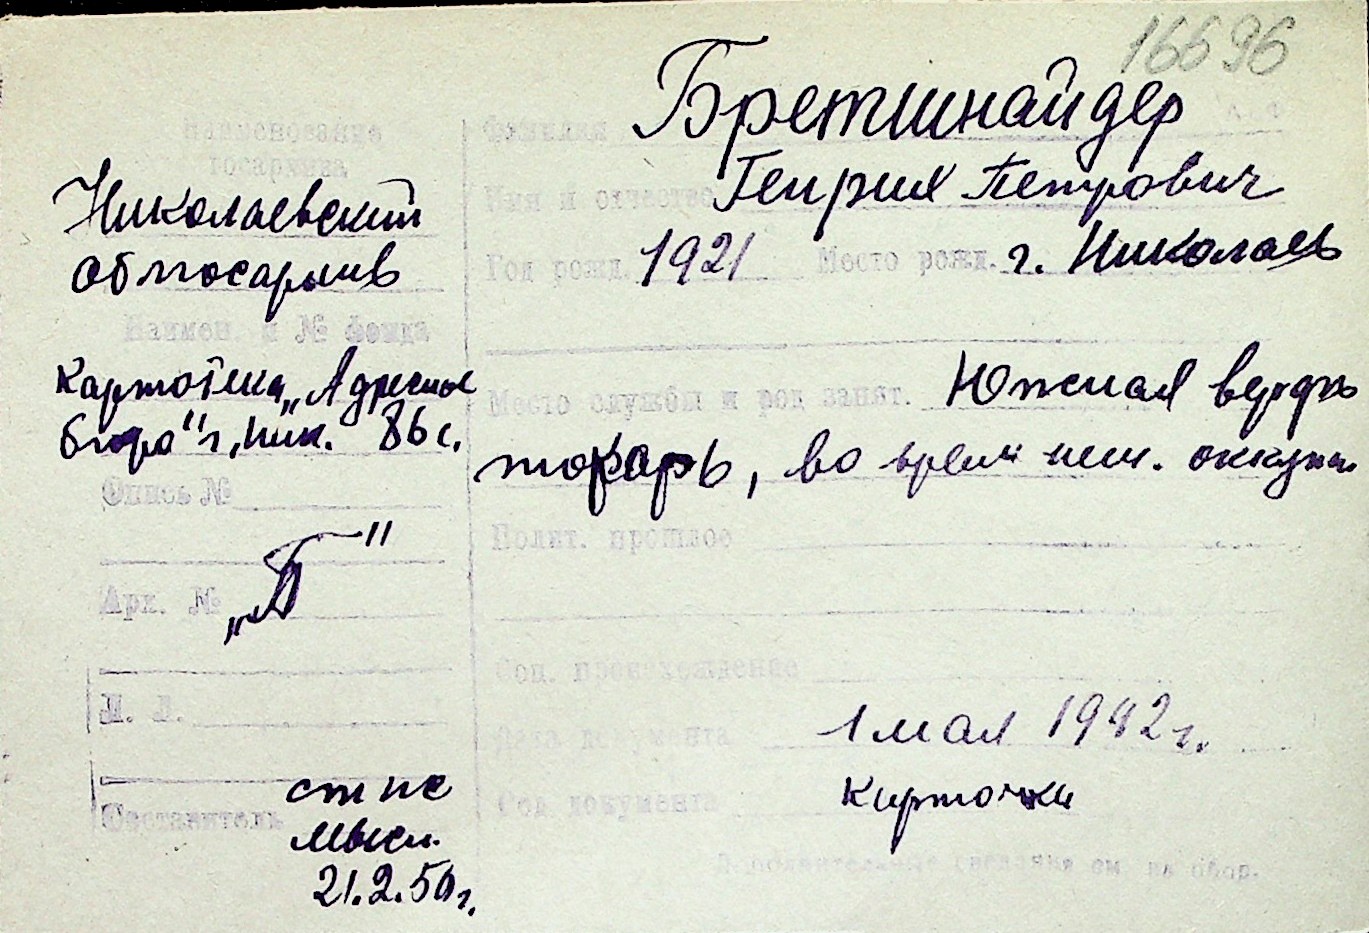 16696
Бретшнайдер
Наименование
госархива
Фамилия
Николаевский
облгосархив
Имя и отчество Генрих Петрович
Год рожд. 1921 Место рожд. г. Николаев
Наимен. и № фонда
Картотека „Адресное
бюро" г. Ник. 86 с.
Место службы и род занят. Южная верфь
токарь, во время нем. оккупац
Опись №
Полит. прошлое
Арх. № „Б"
Соц. происхождение
Л. Л.
Дата документа 1 мая 1942 г.
Составитель
Сод документа Карточка
21.2.50 г.
Дополнительные сведения см на обор.